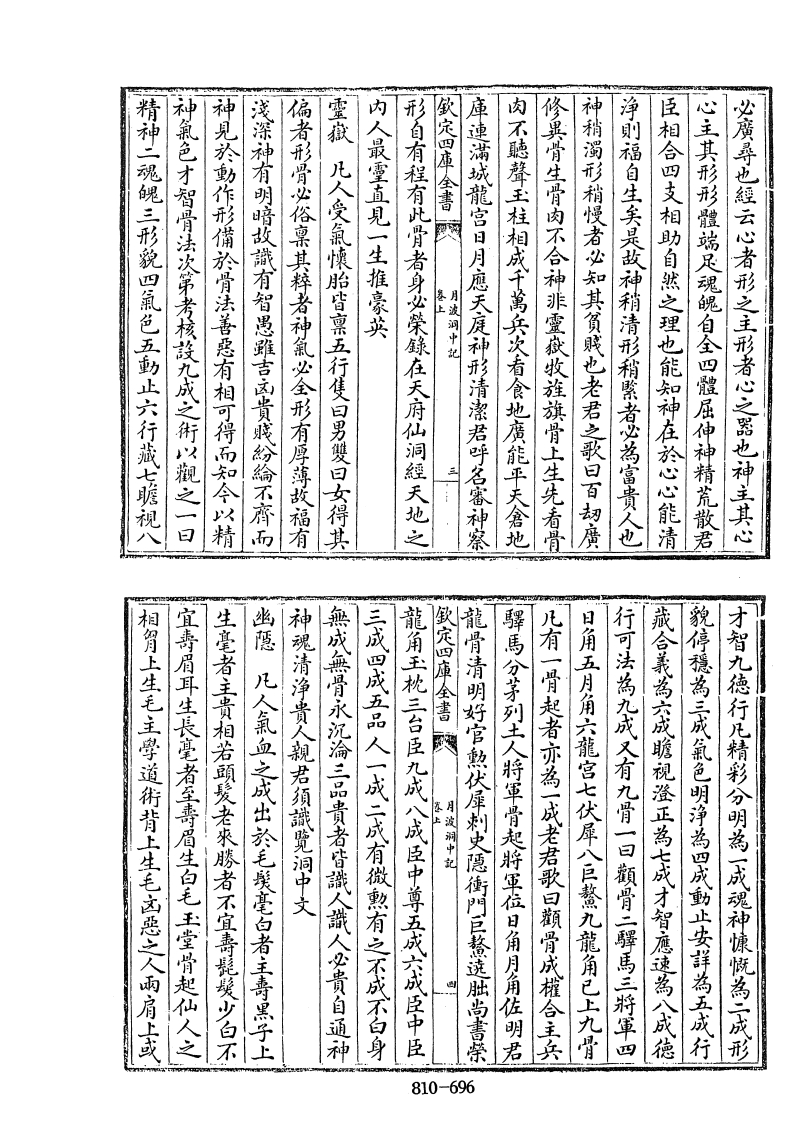 必廣尋也經云心者形之主形者心之器也神主其心
心主其形形體端足魂魄自全四體屈伸神精荒散君
臣相合四支相助自然之理也能知神在於心心能清
淨則福自生矣是故神稍清形稍緊者必為富貴人也
神稍濁形稍慢者必知其貧賤也老君之歌曰百刼廣
修異骨生骨肉不合神非靈嶽牧旌旗骨上生先看骨
肉不聽聲玉柱相成千萬兵次看食地廣能平天倉地
庫連滿城龍宮日月應天庭神形清潔君呼名審神察
欽定四庫全書
月波洞中記
卷上
三
形自有程有此骨者身必榮錄在天府仙洞經天地之
内人最靈直見一生推豪英
靈嶽　凡人受氣懷胎皆稟五行隻曰男雙曰女得其
偏者形骨必俗稟其粹者神氣必全形有厚薄故福有
淺深神有明暗故識有智愚雖吉凶貴賤紛綸不齊而
神見於動作形備於骨法善惡有相可得而知今以精
神氣色才智骨法次第考核設九成之術以觀之一曰
精神二魂魄三形貌四氣色五動止六行藏七瞻視八
才智九德行凡精彩分明為一成魂神慷慨為二成形
貌停穩為三成氣色明淨為四成動止安詳為五成行
藏合義為六成瞻視澄正為七成才智應速為八成德
行可法為九成又有九骨一曰顴骨二驛馬三將軍四
日角五月角六龍宮七伏犀八巨鰲九龍角已上九骨
凡有一骨起者亦為一成老君歌曰顴骨成權合主兵
驛馬分茅列土人將軍骨起將軍位日角月角佐明君
龍骨清明好官勲伏犀刺史隱衝門巨鰲遶朏尚書榮
欽定四庫全書
月波洞中記
卷上
四
龍角玉枕三台臣九成八成臣中尊五成六成臣中臣
三成四成五品人一成二成有微勲有之不成不白身
無成無骨永沉淪三品貴者皆識人識人必貴自通神
神魂清淨貴人親君須識覽洞中文
幽隱　凡人氣血之成出於毛髮毫白者主壽黒子上
生毫者主貴相若頭髮老來勝者不宜壽髭髮少白不
宜壽眉耳生長毫者至壽眉生白毛玉堂骨起仙人之
相胷上生毛主學道術背上生毛凶惡之人兩肩上或
810-696